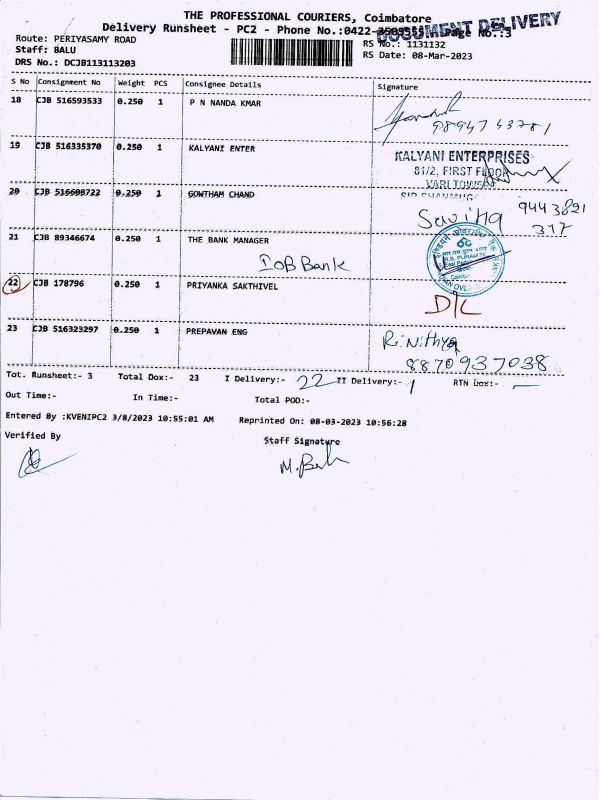 THE PROFESSIONAL COURIERS, Coimbatore
Delivery Runsheet - PC2 - Phone No.:0422- Page No.:3
DOCUMENT DELIVERY
Route: PERIYASAMY ROAD RS No.: 1131132
Staff: BALU RS Date: 08-Mar-2023
DRS No.: DCJB113113203
S No Consignment No Weight PCS Consignee Details Signature
18 CJB 516593533 0.250 1 P N NANDA KMAR
9894743781
19 CJB 516335370 0.250 1 KALYANI ENTER
KALYANI ENTERPRISES
81/2, FIRST FLOOR
20 CJB 516608722 0.250 1 GOWTHAM CHAND
Savitha 9443821
317
21 CJB 89346674 0.250 1 THE BANK MANAGER
IOB Bank
22 CJB 178796 0.250 1 PRIYANKA SAKTHIVEL
D/L
23 CJB 516323297 0.250 1 PREPAVAN ENG
R.Nithya
8870937038
Tot. Runsheet:- 3 Total Dox:- 23 I Delivery:- 22 II Delivery:- 1 RTN Dox:- —
Out Time:- In Time:- Total POD:-
Entered By :KVENIPC2 3/8/2023 10:55:01 AM Reprinted On: 08-03-2023 10:56:28
Verified By Staff Signature